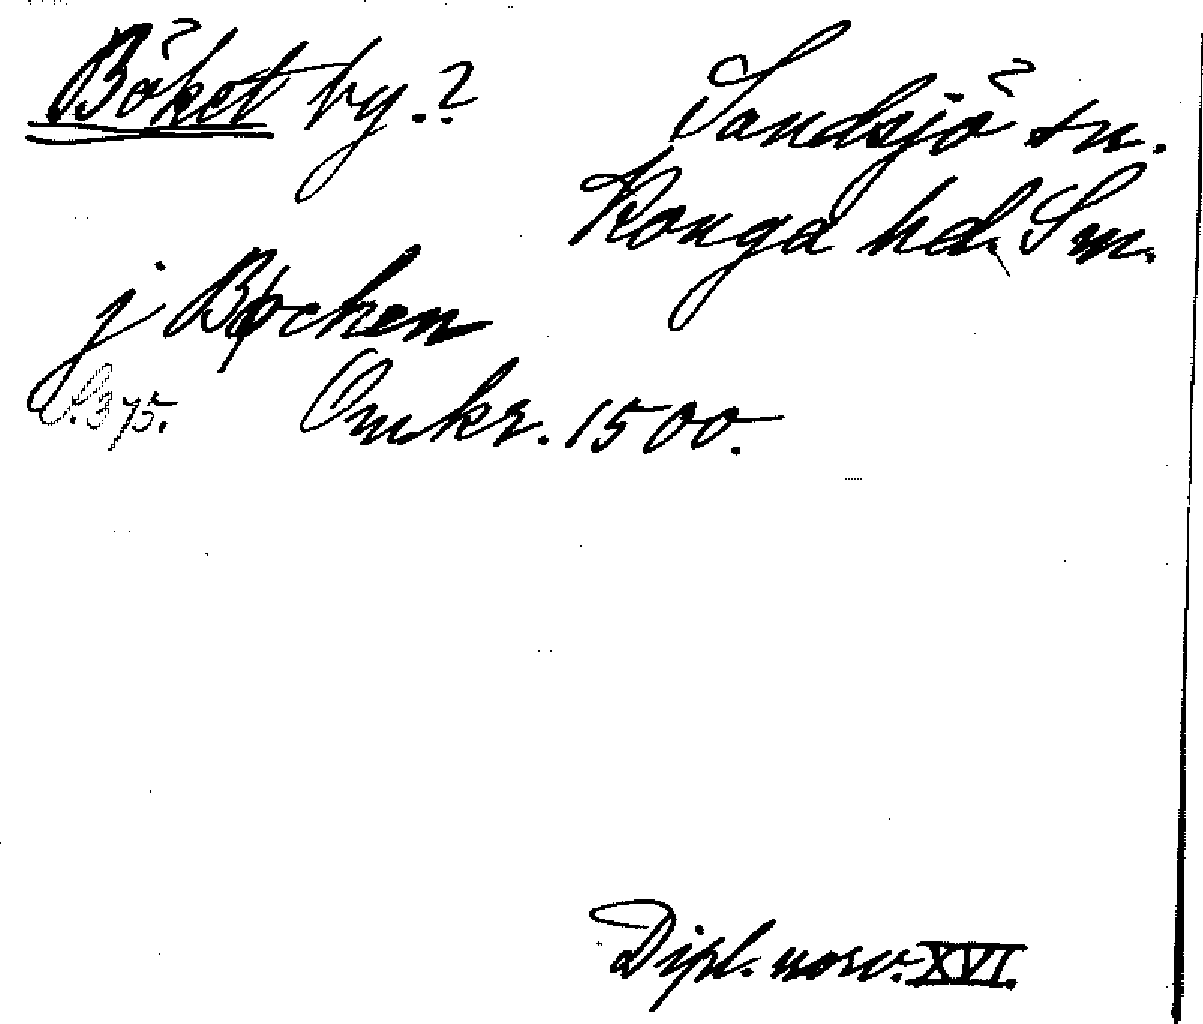 Böket by.?
Sandsjö sn.
Konga hd. Sm.
j Bøchen
S. 375.
Omkr. 1500.
Dipl. norv. XVI.